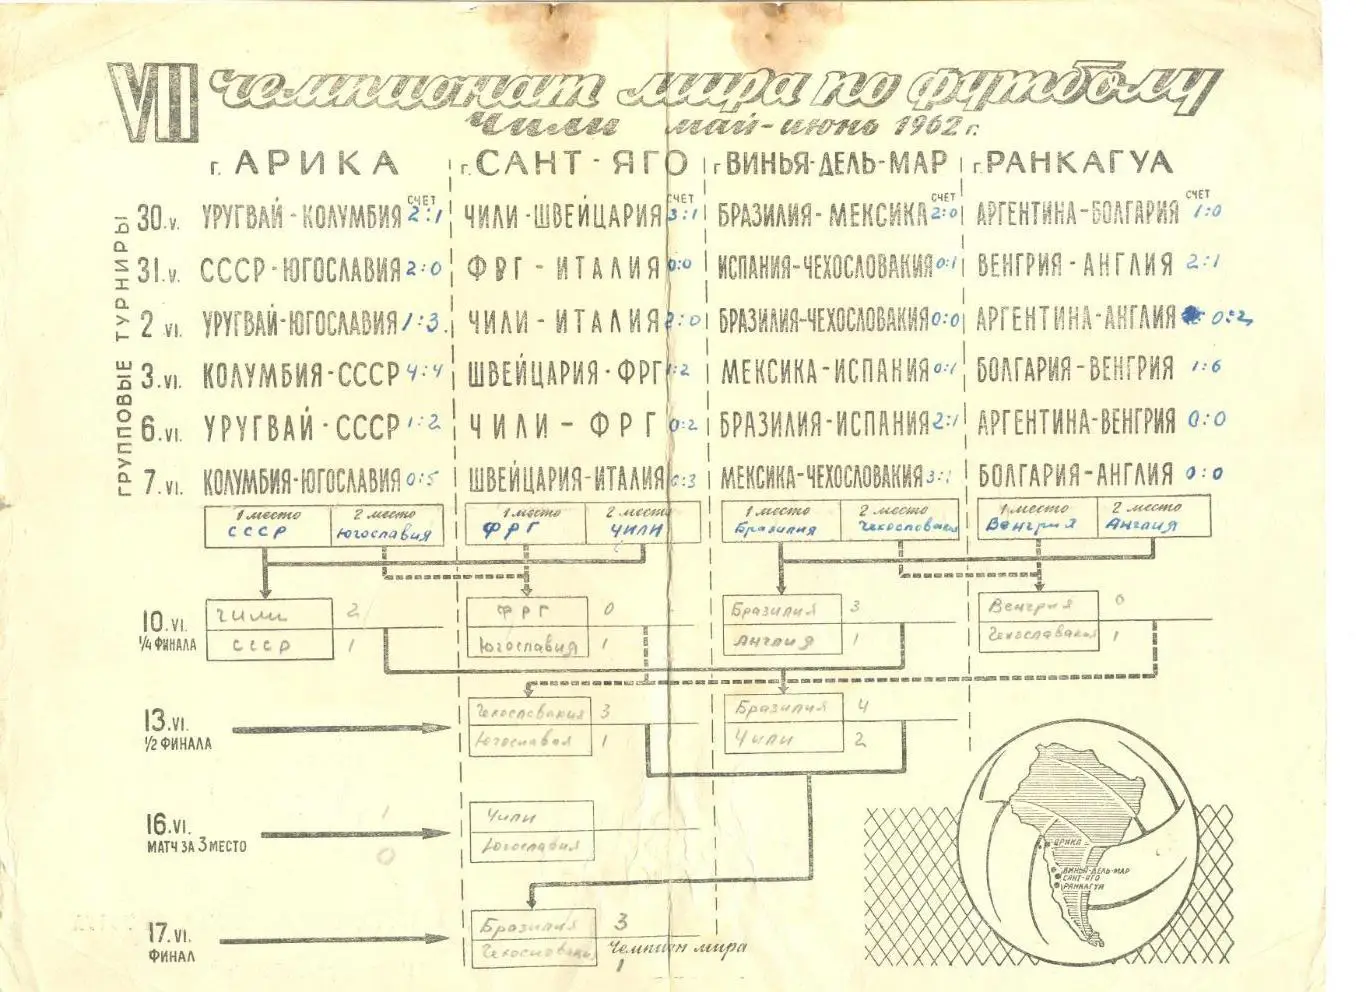 VII чемпионат мира по футболу
Чили май-июнь 1962 г.
г. АРИКА г. САНТ-ЯГО г ВИНЬЯ-ДЕЛЬ-МАР г. РАНКАГУА
ГРУППОВЫЕ ТУРНИРЫ
СЧЕТ СЧЕТ СЧЕТ СЧЕТ
30.V. УРУГВАЙ-КОЛУМБИЯ 2:1 ЧИЛИ-ШВЕЙЦАРИЯ 3:1 БРАЗИЛИЯ-МЕКСИКА 2:0 АРГЕНТИНА-БОЛГАРИЯ 1:0
31.V. СССР-ЮГОСЛАВИЯ 2:0 ФРГ-ИТАЛИЯ 0:0 ИСПАНИЯ-ЧЕХОСЛОВАКИЯ 0:1 ВЕНГРИЯ-АНГЛИЯ 2:1
2.VI. УРУГВАЙ-ЮГОСЛАВИЯ 1:3. ЧИЛИ-ИТАЛИЯ 2:0 БРАЗИЛИЯ-ЧЕХОСЛОВАКИЯ 0:0 АРГЕНТИНА-АНГЛИЯ 0:2
3.VI. КОЛУМБИЯ-СССР 4:4 ШВЕЙЦАРИЯ-ФРГ 1:2 МЕКСИКА-ИСПАНИЯ 0:1 БОЛГАРИЯ-ВЕНГРИЯ 1:6
6.VI. УРУГВАЙ-СССР 1:2 ЧИЛИ-ФРГ 0:2 БРАЗИЛИЯ-ИСПАНИЯ 2:1 АРГЕНТИНА-ВЕНГРИЯ 0:0
7.VI. КОЛУМБИЯ-ЮГОСЛАВИЯ 0:5 ШВЕЙЦАРИЯ-ИТАЛИЯ 0:3 МЕКСИКА-ЧЕХОСЛОВАКИЯ 3:1 БОЛГАРИЯ-АНГЛИЯ 0:0
1 место 2 место 1 место 2 место 1 место 2 место 1 место 2 место
СССР Югославия ФРГ ЧИЛИ Бразилия Чехословакия Венгрия Англия
10.VI. Чили 2 ФРГ 0 Бразилия 3 Венгрия 0
1/4 ФИНАЛА СССР 1 Югославия 1 Англия 1 Чехославакия 1
13.VI. Чехословакия 3 Бразилия 4
1/2 ФИНАЛА Югославия 1 Чили 2
16.VI. Чили 1
МАТЧ ЗА 3 МЕСТО Югославия 0
17.VI. Бразилия 3
ФИНАЛ Чехословакия Чемпион мира
1
АРИКА
ВИНЬЯ-ДЕЛЬ-МАР
САНТ-ЯГО
РАНКАГУА